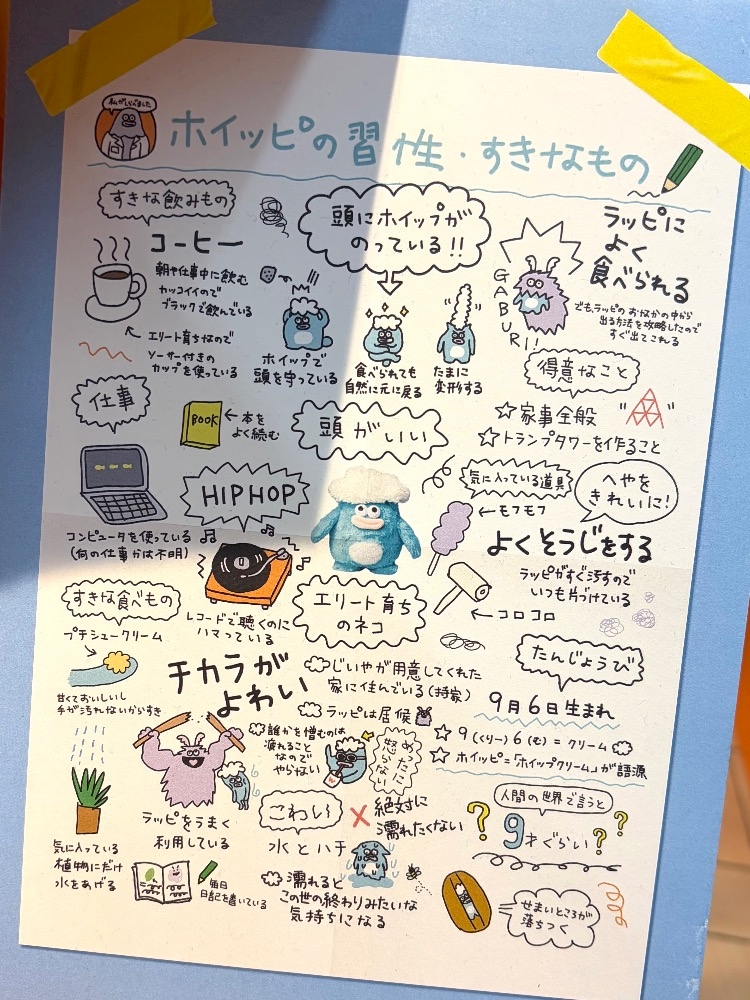 私がしらべました
ホイッピの習性・すきなもの
すきな飲みもの
コーヒー
朝や仕事中に飲む
カッコイイので
ブラックで飲んでいる
エリート育ちなので
ソーサー付きの
カップを使っている
頭にホイップが
のっている!!
ホイップで
頭を守っている
食べられても
自然に元に戻る
たまに
変形する
GABURI!
ラッピに
よく
食べられる
でも、ラッピのおなかの中から
出る方法を攻略したので
すぐ出てこれる
得意なこと
家事全般
トランプタワーを作ること
仕事
BOOK
本を
よく読む
頭がいい
コンピュータを使っている
(何の仕事かは不明)
HIPHOP
レコードで聴くのに
ハマっている
気に入っている道具
モフモフ
コロコロ
へやを
きれいに!
よくそうじをする
ラッピがすぐ汚すので
いつも片づけている
すきな食べもの
プチシュークリーム
甘くておいしいし
手が汚れないからすき
エリート育ち
のネコ
じいやが用意してくれた
家に住んでいる(持家)
ラッピは居候
チカラが
よわい
ラッピをうまく
利用している
誰かを憎むのは
疲れること
なので
やらない
めったに
怒らない
たんじょうび
9月6日生まれ
9(くりー)6(む)=クリーム
ホイッピ=「ホイップクリーム」が語源
気に入っている
植物にだけ
水をあげる
毎日
日記を書いている
こわい
水とハチ
絶対に
濡れたくない
濡れると
この世の終わりみたいな
気持ちになる
人間の世界で言うと
9才ぐらい
せまいところが
落ちつく